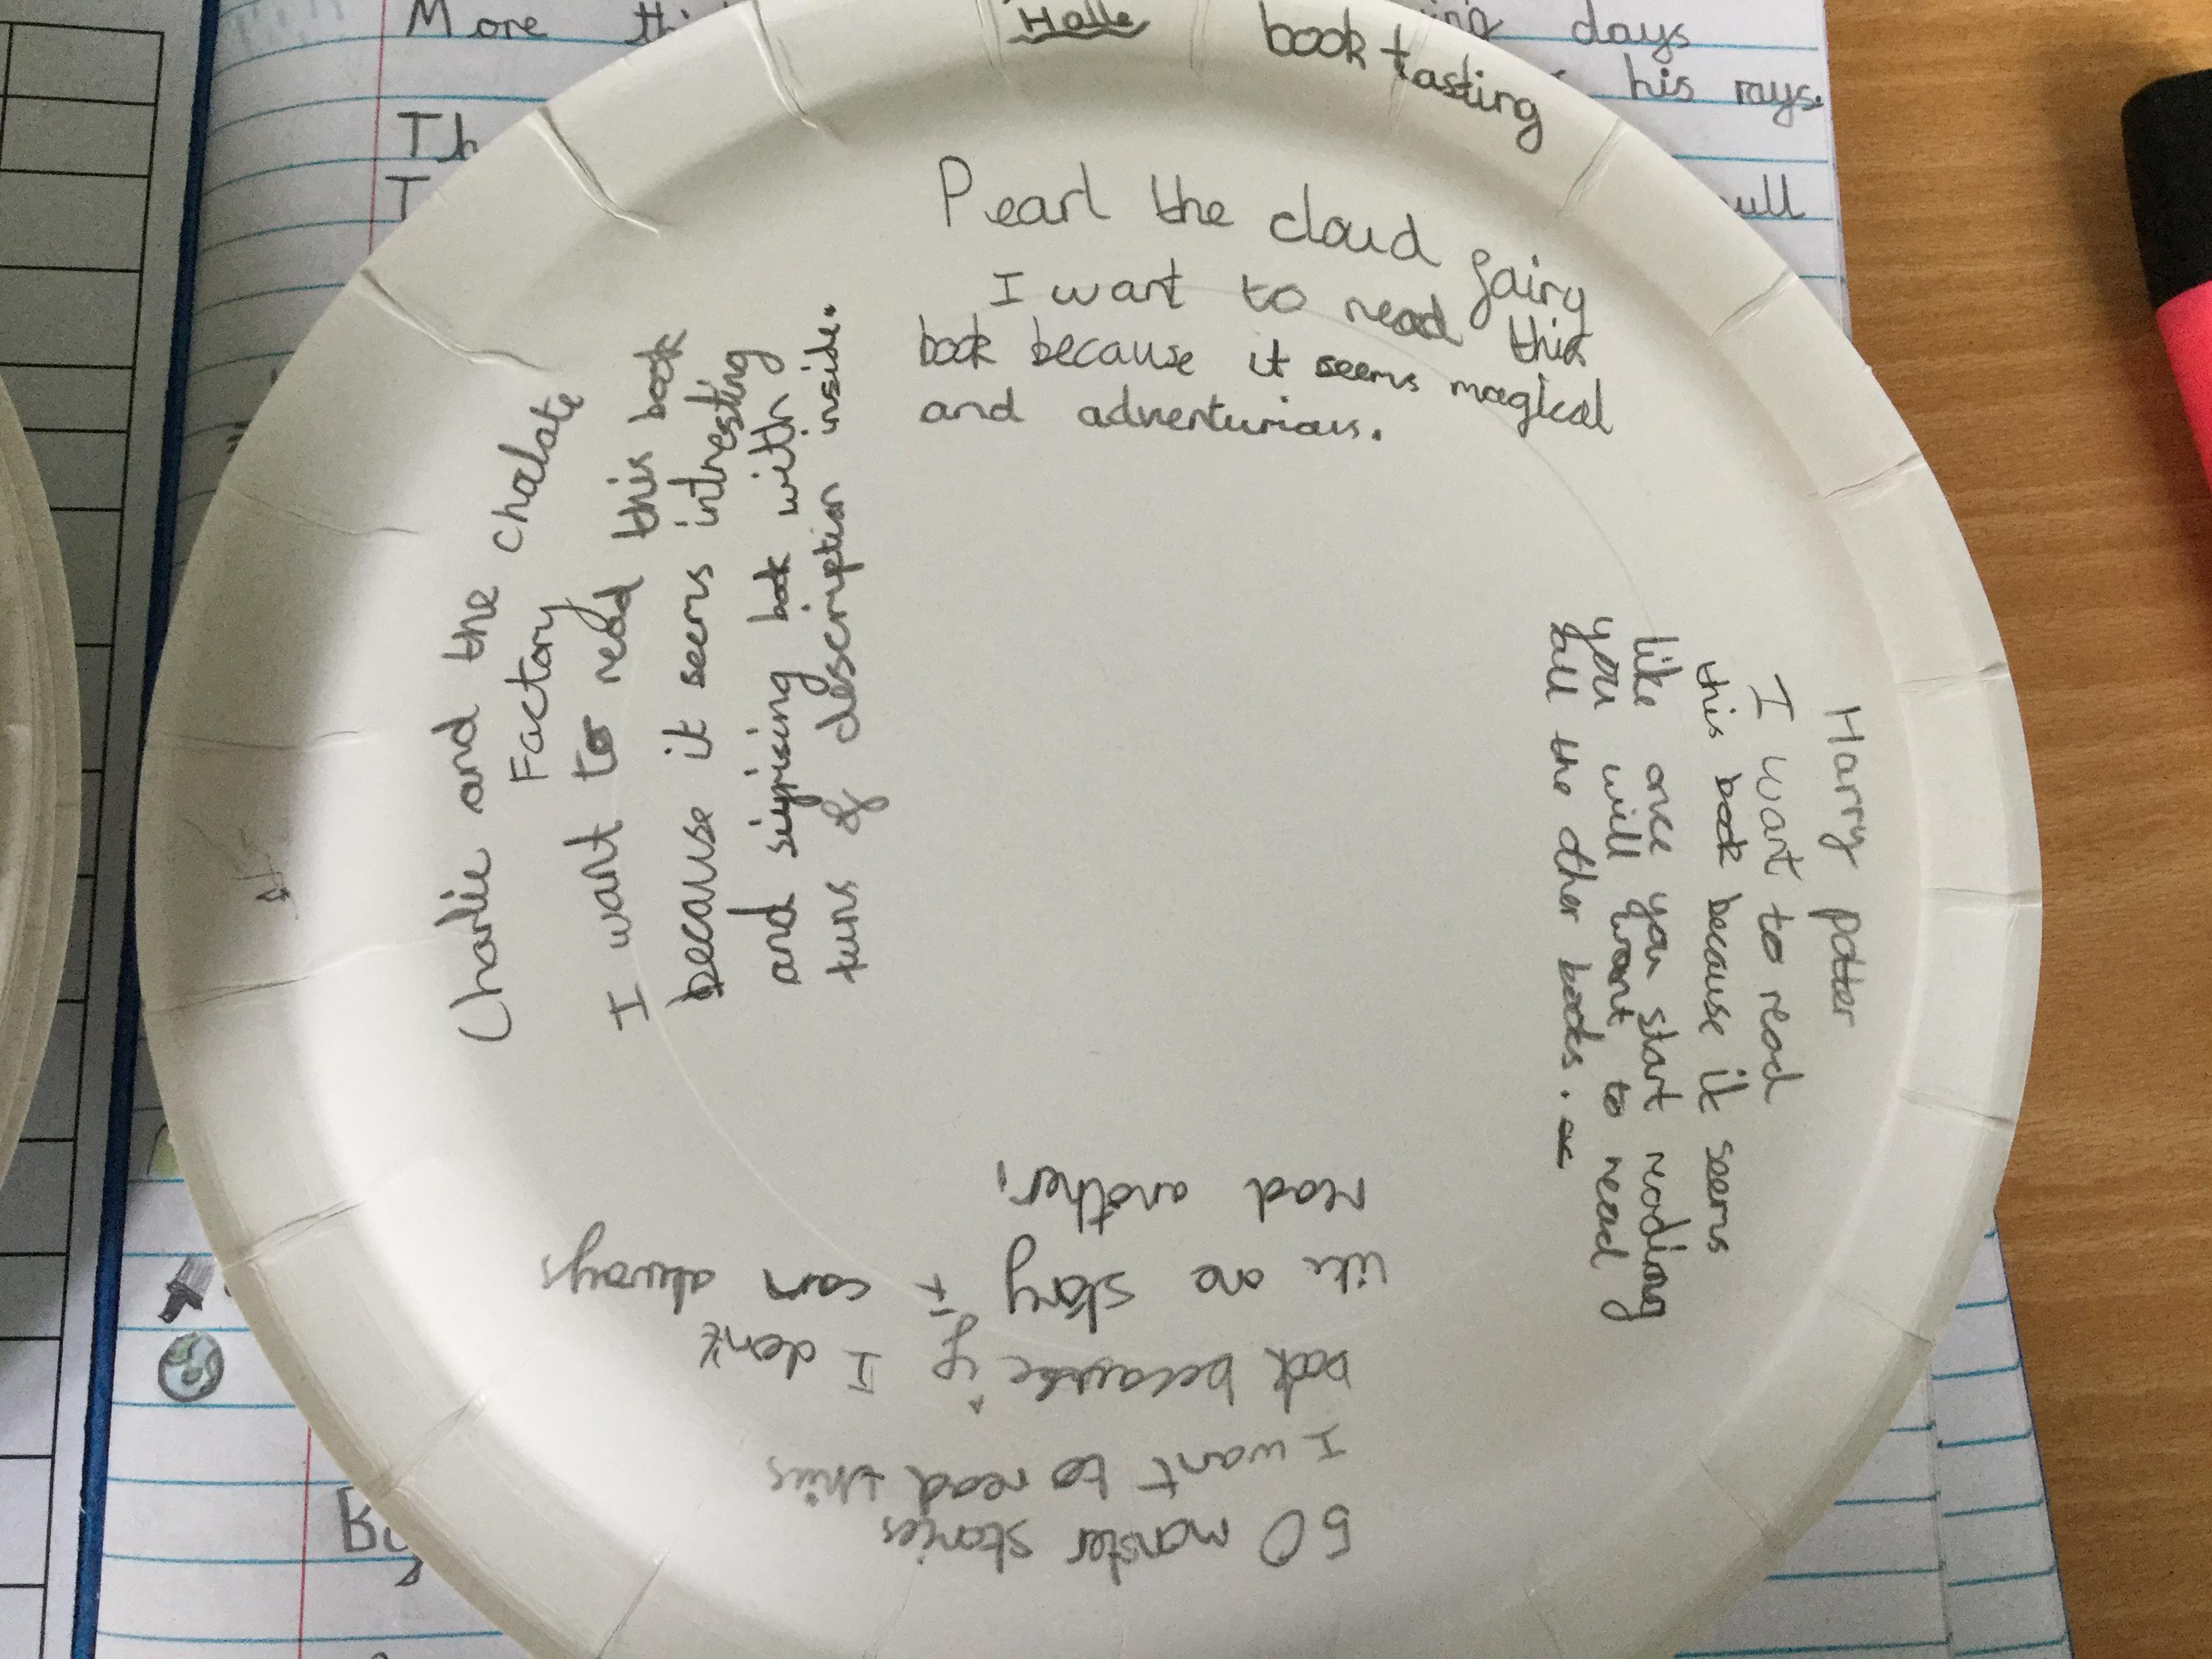 More
days
his rays.
Th
T
ull
Halle
book tasting
Pearl the cloud fairy
I want to read this
book because it seems magical
and adventurious.
Harry potter
I want to read
this book because it seems
like once you start reading
you will want to read
all the other books.
50 monster stories
I want to read this
book because if I don't
like one story I can always
read another.
Charlie and the chocolate
Factory
I want to read this book
because it seems intresting
and suprising book with
tuns of description inside.